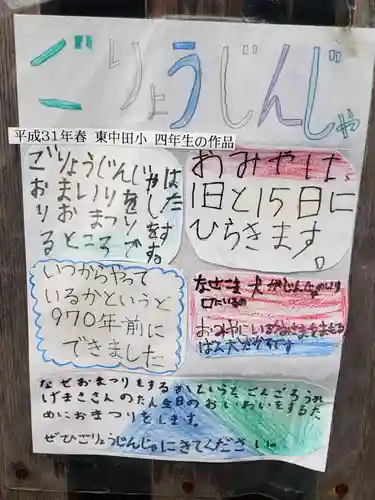 ごりょうじんじゃ
平成31年春 東中田小 四年生の作品
ごりょうじんじゃは
おまいりをしたり
おまつりをする
ところです。
おみやは、
1日と15日に
ひらきます。
いつからやって
いるかというと
970年前に
できました
なぜこま犬がじんじゃのいり
口にいるの
なぜおまつりをするかというとごんごろうかげ
まささんのたん生日のおいわいをするた
めにおまつりをします。
ぜひごりょうじんじゃにきてください。